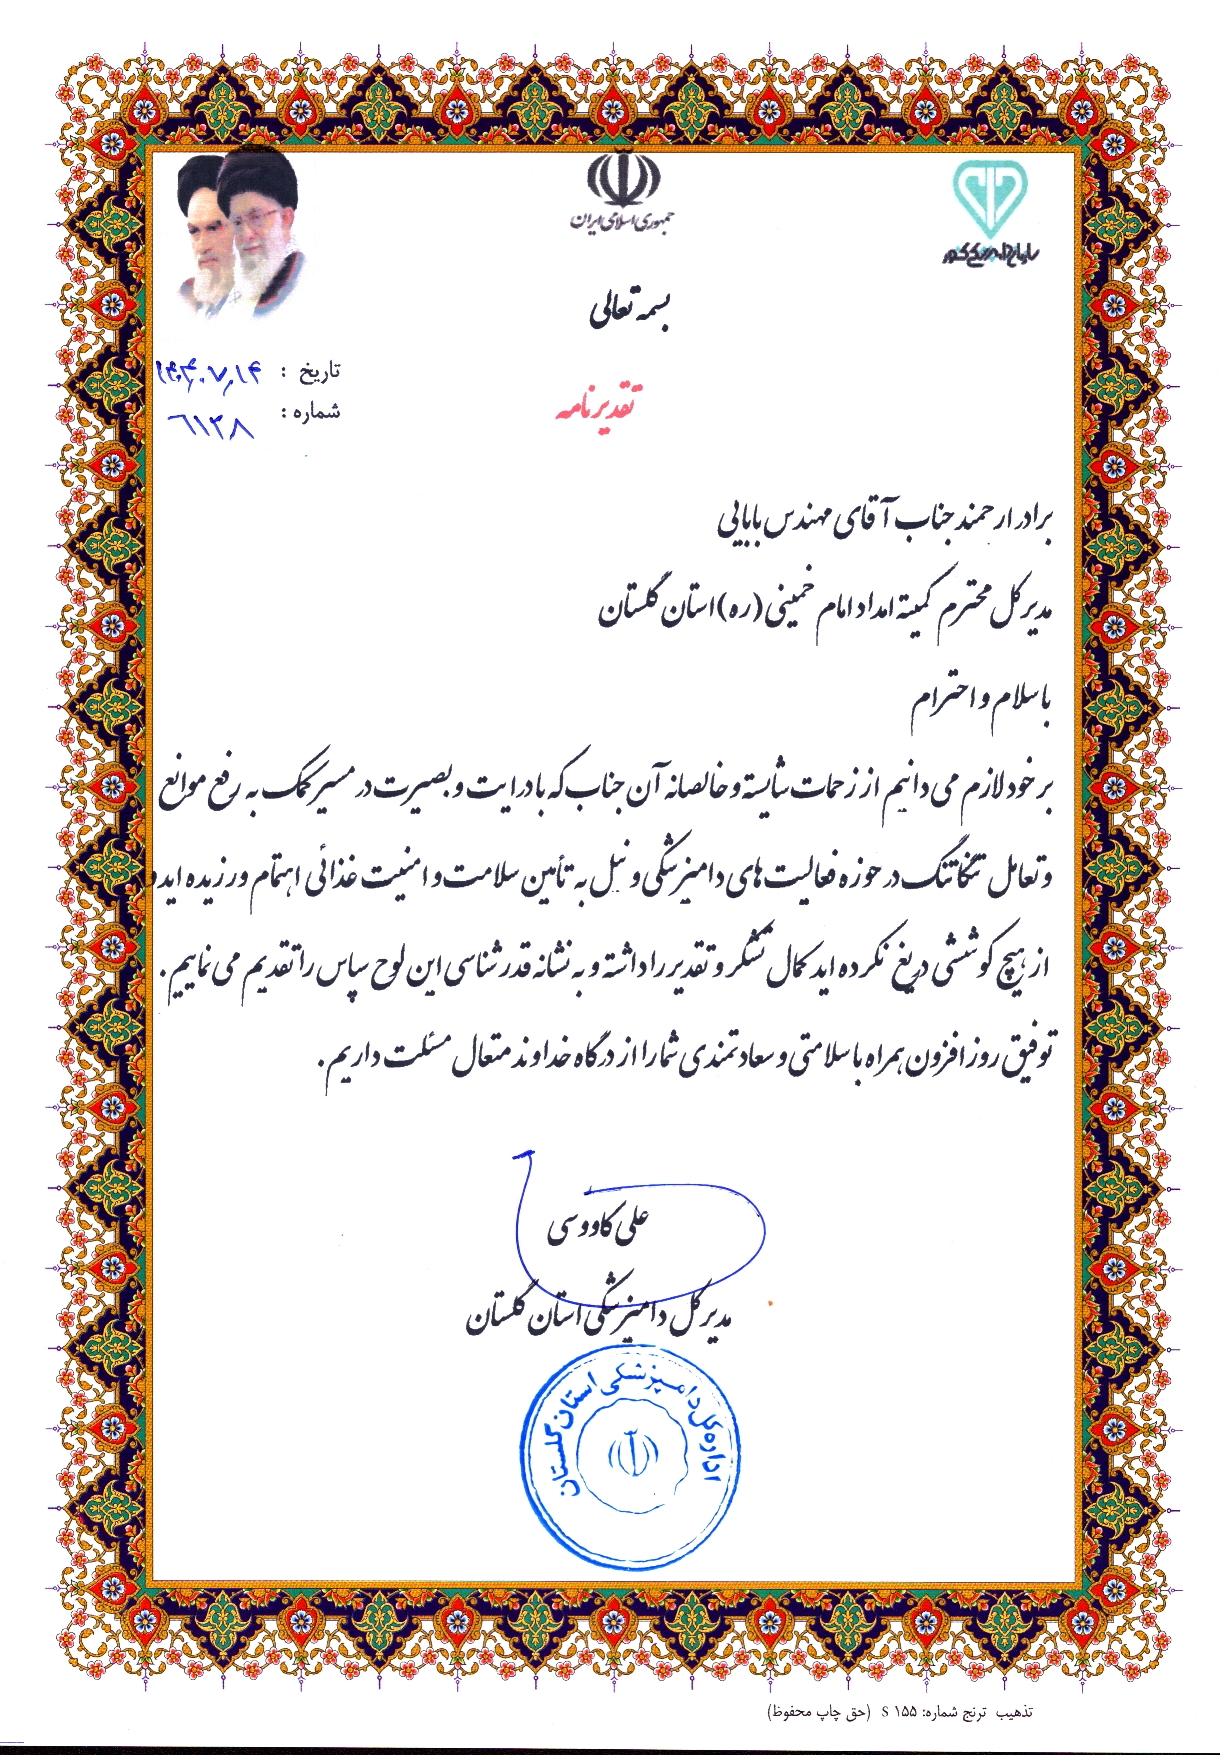 جمهوری اسلامی ایران
سازمان دامپزشکی کشور
بسمه تعالی
تاریخ : ۱۴۰۴٫۰۷٫۱۴
شماره : ۶۱۳۸
تقدیرنامه
برادر ارجمند جناب آقای مهندس بابایی
مدیرکل محترم کمیته امداد امام خمینی (ره) استان گلستان
با سلام و احترام
بر خود لازم می دانیم از زحمات شایسته و خالصانه آن جناب که با درایت و بصیرت در مسیر کمک به رفع موانع
و تعامل تنگاتنگ در حوزه فعالیت های دامپزشکی و نیل به تأمین سلامت و امنیت غذائی اهتمام ورزیده اید و
از هیچ کوششی دریغ نکرده اید کمال تشکر و تقدیر را داشته و به نشانه قدرشناسی این لوح سپاس را تقدیم می نماییم.
توفیق روز افزون همراه با سلامتی و سعادتمندی شما را از درگاه خداوند متعال مسئلت داریم.
علی کاووسی
مدیرکل دامپزشکی استان گلستان
اداره کل دامپزشکی استان گلستان
تذهیب ترنج شماره: S ۱۵۵ (حق چاپ محفوظ)